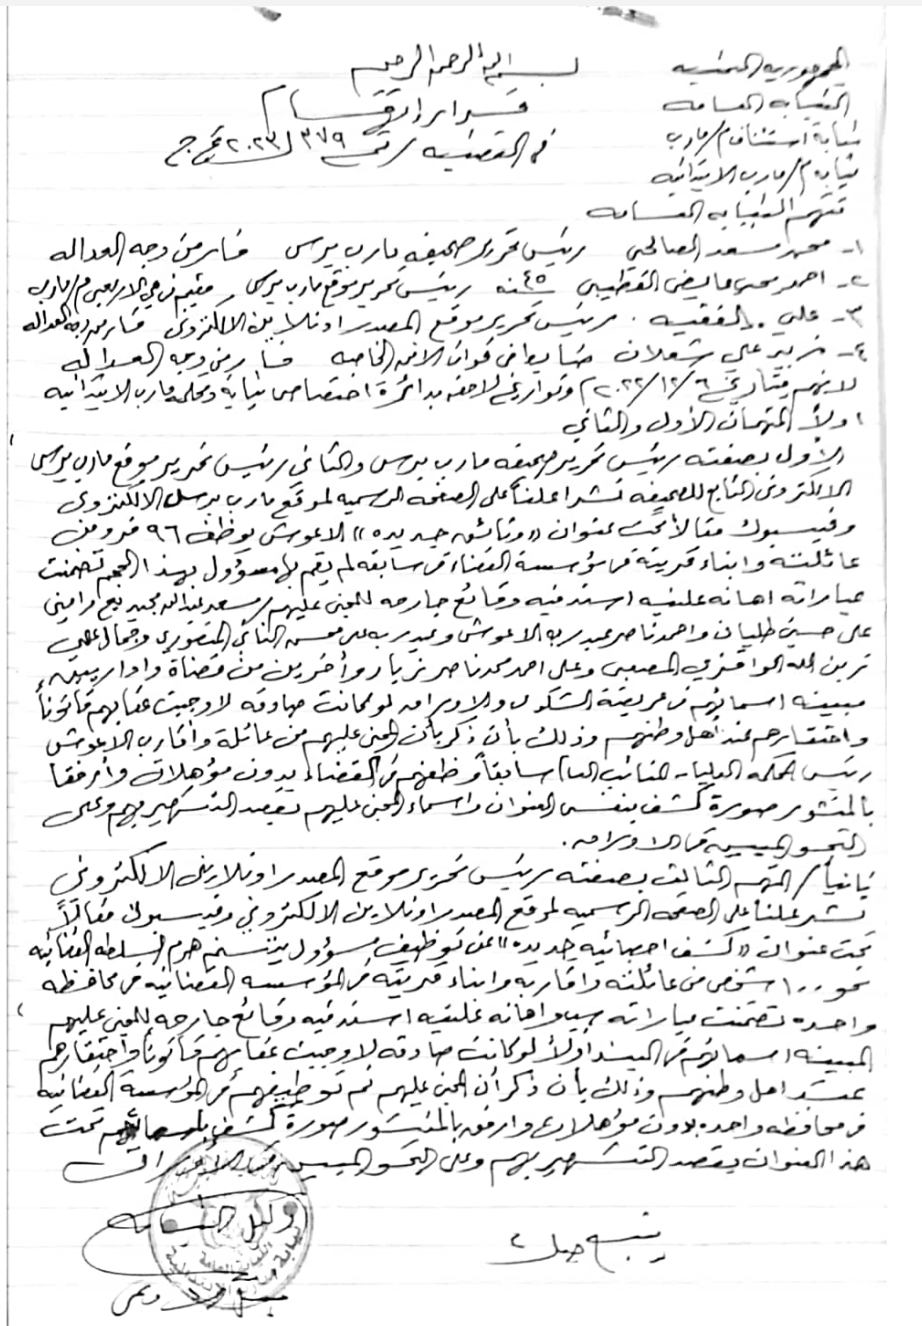 بسم الله الرحمن الرحيم
الجمهورية اليمنية
النيابة العامة
قرار اتهام
نيابة استئناف م/مارب
في القضية رقم ٣٧٩ لـ ٢٠٢٣ ج ج
نيابة م/مارب الابتدائية
تتهم النيابة العامة
١- محمد مسعد الصالحي رئيس تحرير صحيفة مارب برس فار من وجه العدالة
٢- احمد يحيى عايض القطيبي ٤٥ سنة رئيس تحرير موقع مارب برس مقيم في حي الاربعين م/مارب
٣- علي الفقيه رئيس تحرير موقع المصدر اونلاين الالكتروني فار من وجه العدالة
٤- علي شعلان ضابط في قوات الامن الخاصة فار من وجه العدالة
لانهم بتاريخ ٦/١٢/٢٠٢٢م وتواريخ لاحقة بدائرة اختصاص نيابة ومحكمة مارب الابتدائية
اولاً المتهمان الأول والثاني
الأول بصفته رئيس تحرير صحيفة مارب برس والثاني رئيس تحرير موقع مارب برس
الالكتروني التابع للصحيفة نشرا علناً على الصفحة الرسمية لموقع مارب برس الالكتروني
وفيسبوك مقالاً تحت عنوان «وثائق جديدة» الاعوش يوظف ٩٦ فرد من
عائلته وابناء قريته في مؤسسة القضاء في سابقة لم يقم بها مسؤول بهذا الحجم تضمنت
عبارات اهانة علنية اسند فيه وقائع جارحه للمجني عليهم/مسعد عبدالله
علي حسين واحمد ناصر عبدربه الاعوش وعبدربه محسن المنصوري وجمال علي
وعلى احمد محمد ناصر وآخرين من قضاة واداريين
مبينة اسمائهم في عريضة الشكوى والاوراق لو كانت صادقة لاوجبت عقابهم قانوناً
واحتقارهم عند أهل وطنهم وذلك بأن ذكر بأن المجني عليهم من عائلة وأقارب الاعوش
رئيس المحكمة العليا - النائب العام سابقاً وظفهم في القضاء بدون مؤهلات وأرفقا
بالمنشور صورة كشف بنفس العنوان واسماء المجني عليهم بقصد التشهير بهم وعلى
النحو المبين في الاوراق.
ثانياً/المتهم الثالث بصفته رئيس تحرير موقع المصدر اونلاين الالكتروني
نشر علناً على الصفحة الرسمية لموقع المصدر اونلاين الالكتروني وفيسبوك مقالاً
تحت عنوان «كشف احصائية جديدة» عن توظيف مسؤول يتسنم هرم السلطة القضائية
نحو ١٠٠ شخص من عائلته واقاربه وابناء قريته في المؤسسة القضائية في محافظة
واحدة تضمنت عبارات سب واهانة علنية اسند فيه وقائع جارحه للمجني عليهم
المبينة اسمائهم في البند اولاً لو كانت صادقة لاوجبت عقابهم قانوناً واحتقارهم
عند اهل وطنهم وذلك بأن ذكر أن المجني عليهم تم توظيفهم في المؤسسة القضائية
في محافظة واحدة بدون مؤهلات وارفق بالمنشور صورة كشف باسمائهم تحت
هذا العنوان بقصد التشهير بهم وعلى النحو المبين في الاوراق
وكيل النيابة
يتبع ص٢